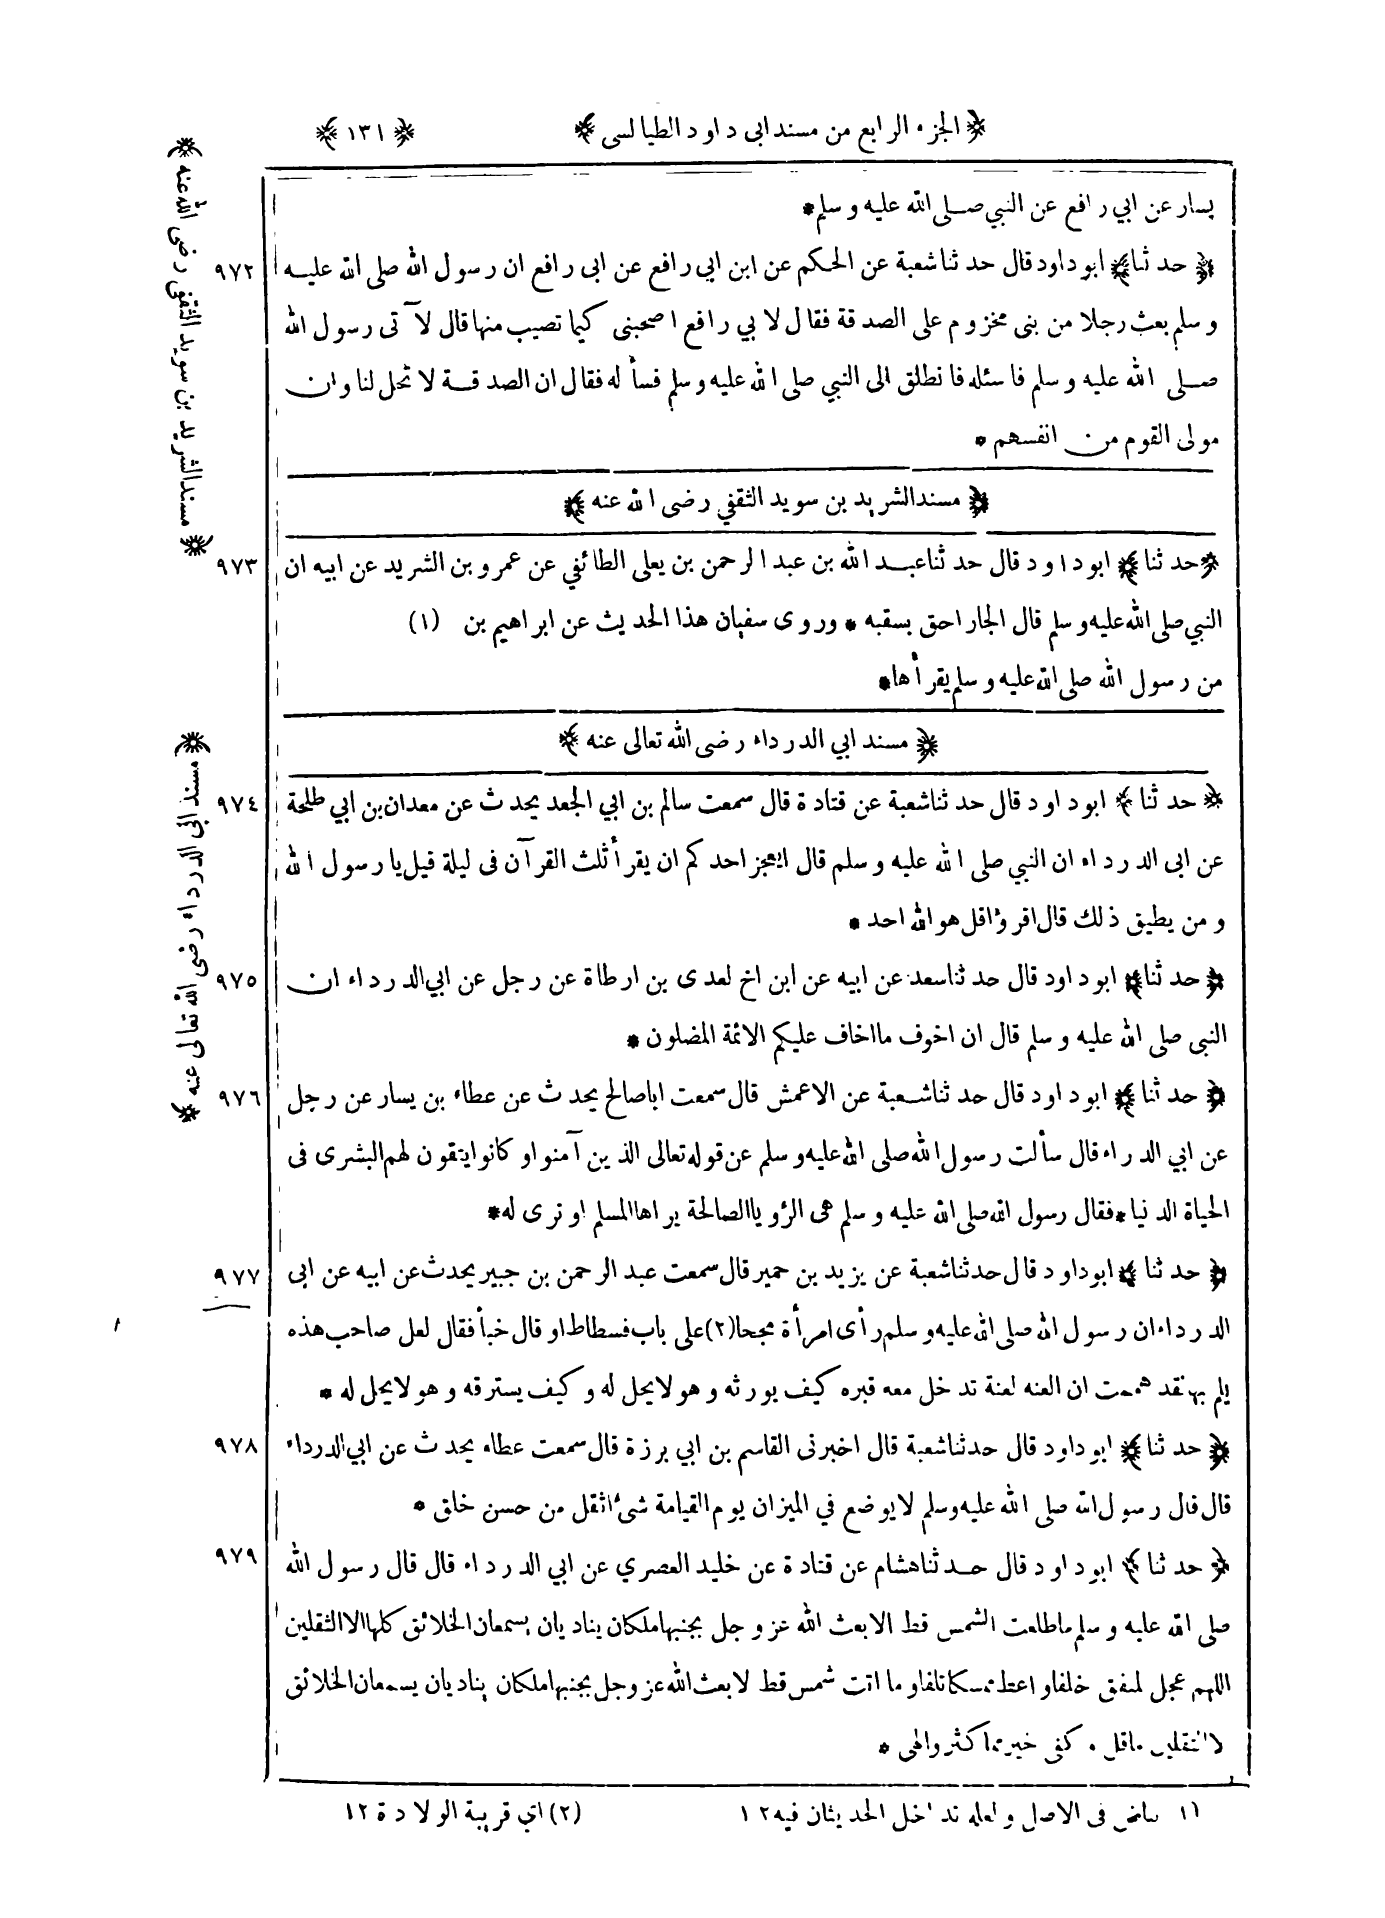 ﴿ الجزء الرابع من مسند ابى داود الطيالسى ﴾ ﴿ ١٣١ ﴾
يسار عن ابي رافع عن النبي صلى الله عليه وسلم*
﴿ حدثنا ﴾ ابو داود قال حدثنا شعبة عن الحكم عن ابن ابي رافع عن ابى رافع ان رسول الله صلى الله عليه ٩٧٢
وسلم بعث رجلا من بنى مخزوم على الصدقة فقال لابي رافع اصحبنى كيما تصيب منها قال لا آتى رسول الله
صلى الله عليه وسلم فاسئله فانطلق الى النبي صلى الله عليه وسلم فسأله فقال ان الصدقة لا تحل لنا وان
مولى القوم من انفسهم *
﴿ مسند الشريد بن سويد الثقفي رضى الله عنه ﴾
﴿ حدثنا ﴾ ابو داود قال حدثنا عبد الله بن عبد الرحمن بن يعلى الطائفي عن عمرو بن الشريد عن ابيه ان ٩٧٣
النبي صلى الله عليه وسلم قال الجار احق بسقبه * وروى سفيان هذا الحديث عن ابراهيم بن (١)
من رسول الله صلى الله عليه وسلم يقرأها*
﴿ مسند ابي الدرداء رضى الله تعالى عنه ﴾
﴿ حدثنا ﴾ ابو داود قال حدثنا شعبة عن قتادة قال سمعت سالم بن ابي الجعد يحدث عن معدان بن ابي طلحة ٩٧٤
عن ابى الدرداء ان النبي صلى الله عليه وسلم قال ايعجز احدكم ان يقرأ ثلث القرآن فى ليلة قيل يا رسول الله
ومن يطيق ذلك قال اقرؤا قل هو الله احد *
﴿ حدثنا ﴾ ابو داود قال حدثنا سعد عن ابيه عن ابن اخ لعدى بن ارطاة عن رجل عن ابي الدرداء ان ٩٧٥
النبى صلى الله عليه وسلم قال ان اخوف ما اخاف عليكم الائمة المضلون *
﴿ حدثنا ﴾ ابو داود قال حدثنا شعبة عن الاعمش قال سمعت ابا صالح يحدث عن عطاء بن يسار عن رجل ٩٧٦
عن ابي الدراء قال سألت رسول الله صلى الله عليه وسلم عن قوله تعالى الذين آمنوا وكانوا يتقون لهم البشرى فى
الحياة الدنيا* فقال رسول الله صلى الله عليه وسلم هى الرؤيا الصالحة يراها المسلم او ترى له*
﴿ حدثنا ﴾ ابو داود قال حدثنا شعبة عن يزيد بن خمير قال سمعت عبد الرحمن بن جبير يحدث عن ابيه عن ابى ٩٧٧
الدرداء ان رسول الله صلى الله عليه وسلم رأى امرأة مجحا (٢) على باب فسطاط او قال خبأ فقال لعل صاحب هذه
يلم بها لقد هممت ان العنه لعنة تدخل معه قبره كيف يورثه وهو لا يحل له وكيف يسترقه وهو لا يحل له *
﴿ حدثنا ﴾ ابو داود قال حدثنا شعبة قال اخبرنى القاسم بن ابي برزة قال سمعت عطاء يحدث عن ابي الدرداء ٩٧٨
قال قال رسول الله صلى الله عليه وسلم لا يوضع في الميزان يوم القيامة شئ اثقل من حسن خلق *
﴿ حدثنا ﴾ ابو داود قال حدثنا هشام عن قتادة عن خليد العصري عن ابي الدرداء قال قال رسول الله ٩٧٩
صلى الله عليه وسلم ما طلعت الشمس قط الا بعث الله عز وجل بجنبها ملكان يناديان يسمعان الخلائق كلها الا الثقلين
اللهم عجل لمنفق خلفا واعط ممسكا تلفا وما اتت شمس قط لا بعث الله عز وجل بجنبها ملكان يناديان يسمعان الخلائق
لا الثقلين ما قل وكفى خير مما كثر والهى *
(١ بياض فى الاصل ولعله تداخل الحديثان فيه ١٢ (٢) اي قريبة الولادة ١٢
﴿ مسند الشريد بن سويد الثقفى رضى الله عنه ﴾
﴿ مسند ابى الدرداء رضى الله تعالى عنه ﴾